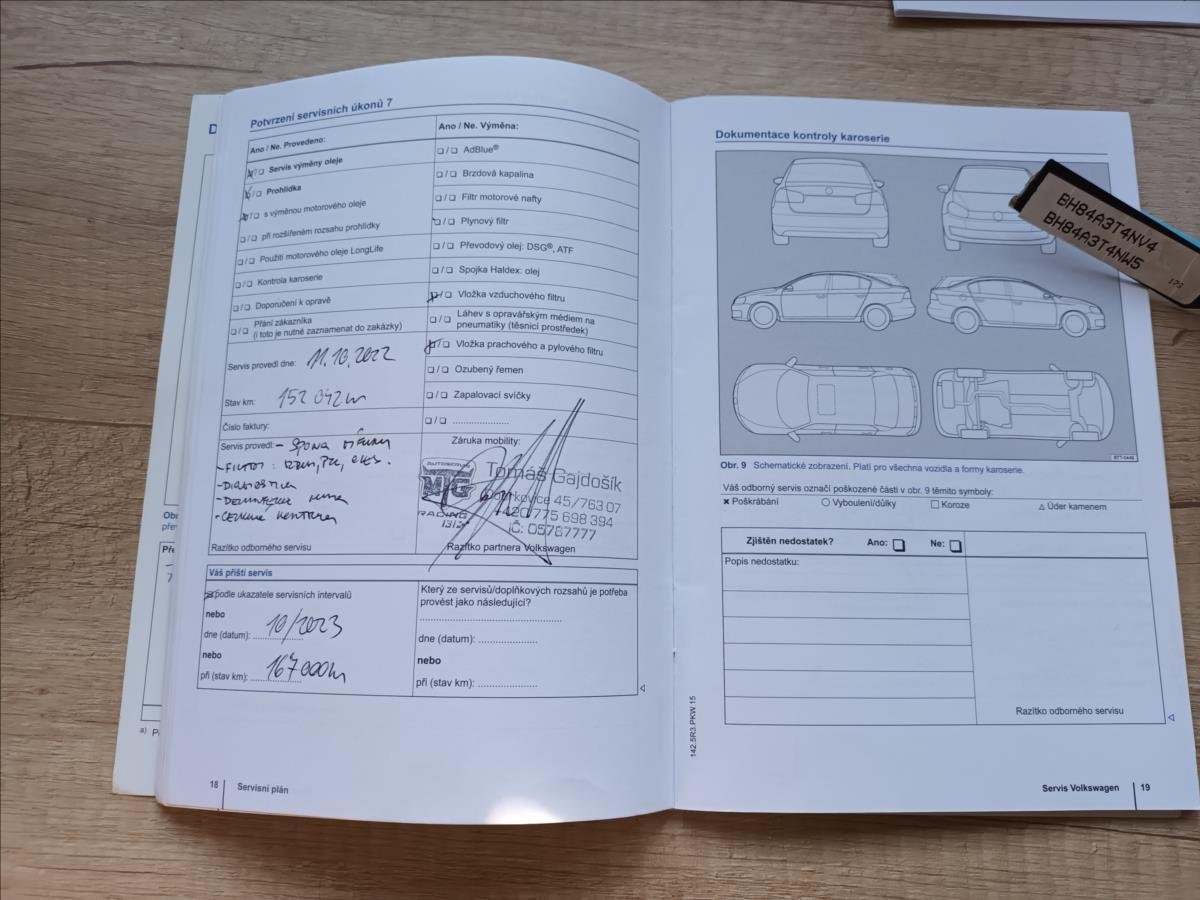 Potvrzení servisních úkonů 7
Ano / Ne. Provedeno:
❑ Servis výměny oleje
❑ Prohlídka
❑ s výměnou motorového oleje
❑ / ❑ při rozšířeném rozsahu prohlídky
❑ / ❑ Použití motorového oleje LongLife
❑ / ❑ Kontrola karoserie
❑ / ❑ Doporučení k opravě
❑ / ❑ Přání zákazníka
(i toto je nutné zaznamenat do zakázky)
Servis provedl dne: 11.10.2022
Stav km: 152 042 km
Číslo faktury:
Servis provedl:
- DIAGNOSTIKA
Razítko odborného servisu
Ano / Ne. Výměna:
❑ / ❑ AdBlue®
❑ / ❑ Brzdová kapalina
❑ / ❑ Filtr motorové nafty
❑ / ❑ Plynový filtr
❑ / ❑ Převodový olej: DSG®, ATF
❑ / ❑ Spojka Haldex: olej
/ ❑ Vložka vzduchového filtru
❑ / ❑ Láhev s opravářským médiem na
pneumatiky (těsnicí prostředek)
/ ❑ Vložka prachového a pylového filtru
❑ / ❑ Ozubený řemen
❑ / ❑ Zapalovací svíčky
❑ / ❑ ....................
Záruka mobility:
MG
RACING
Tomáš Gajdošík
45/763 07
+420 775 698 394
IČ: 05787777
Razítko partnera Volkswagen
Váš příští servis
podle ukazatele servisních intervalů
nebo
dne (datum): 10/2023
nebo
při (stav km): 167 000 km
Který ze servisů/doplňkových rozsahů je potřeba
provést jako následující?
dne (datum): ....................
nebo
při (stav km): ....................
18 Servisní plán
Dokumentace kontroly karoserie
BH84A3T4NV4
BH84A3T4NW5
173
Obr. 9 Schematické zobrazení. Platí pro všechna vozidla a formy karoserie.
Váš odborný servis označí poškozené části v obr. 9 těmito symboly:
✖ Poškrábání ○ Vyboulení/důlky □ Koroze △ Úder kamenem
Zjištěn nedostatek? Ano: ❑ Ne: ❑
Popis nedostatku:
Razítko odborného servisu
142.5R3.PKW.15
Servis Volkswagen 19